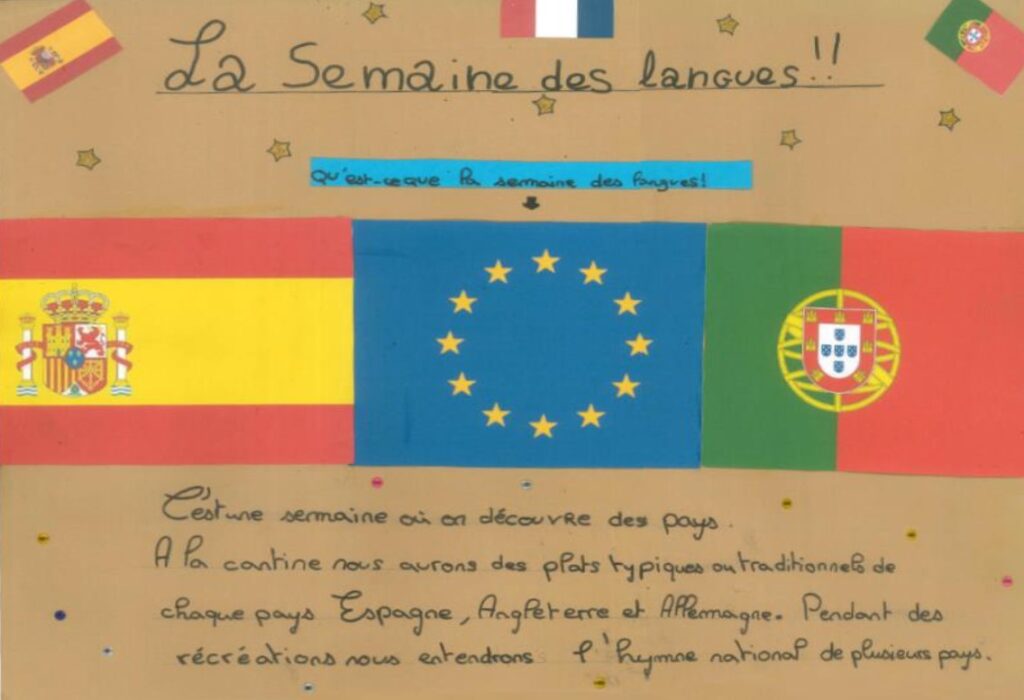 La Semaine des langues !!
Qu'est-ce que la semaine des langues!
C'est une semaine où on découvre des pays.
A la cantine nous aurons des plats typiques ou traditionnels de
chaque pays Espagne, Angleterre et Allemagne. Pendant des
récréations nous entendrons l'hymne national de plusieurs pays.